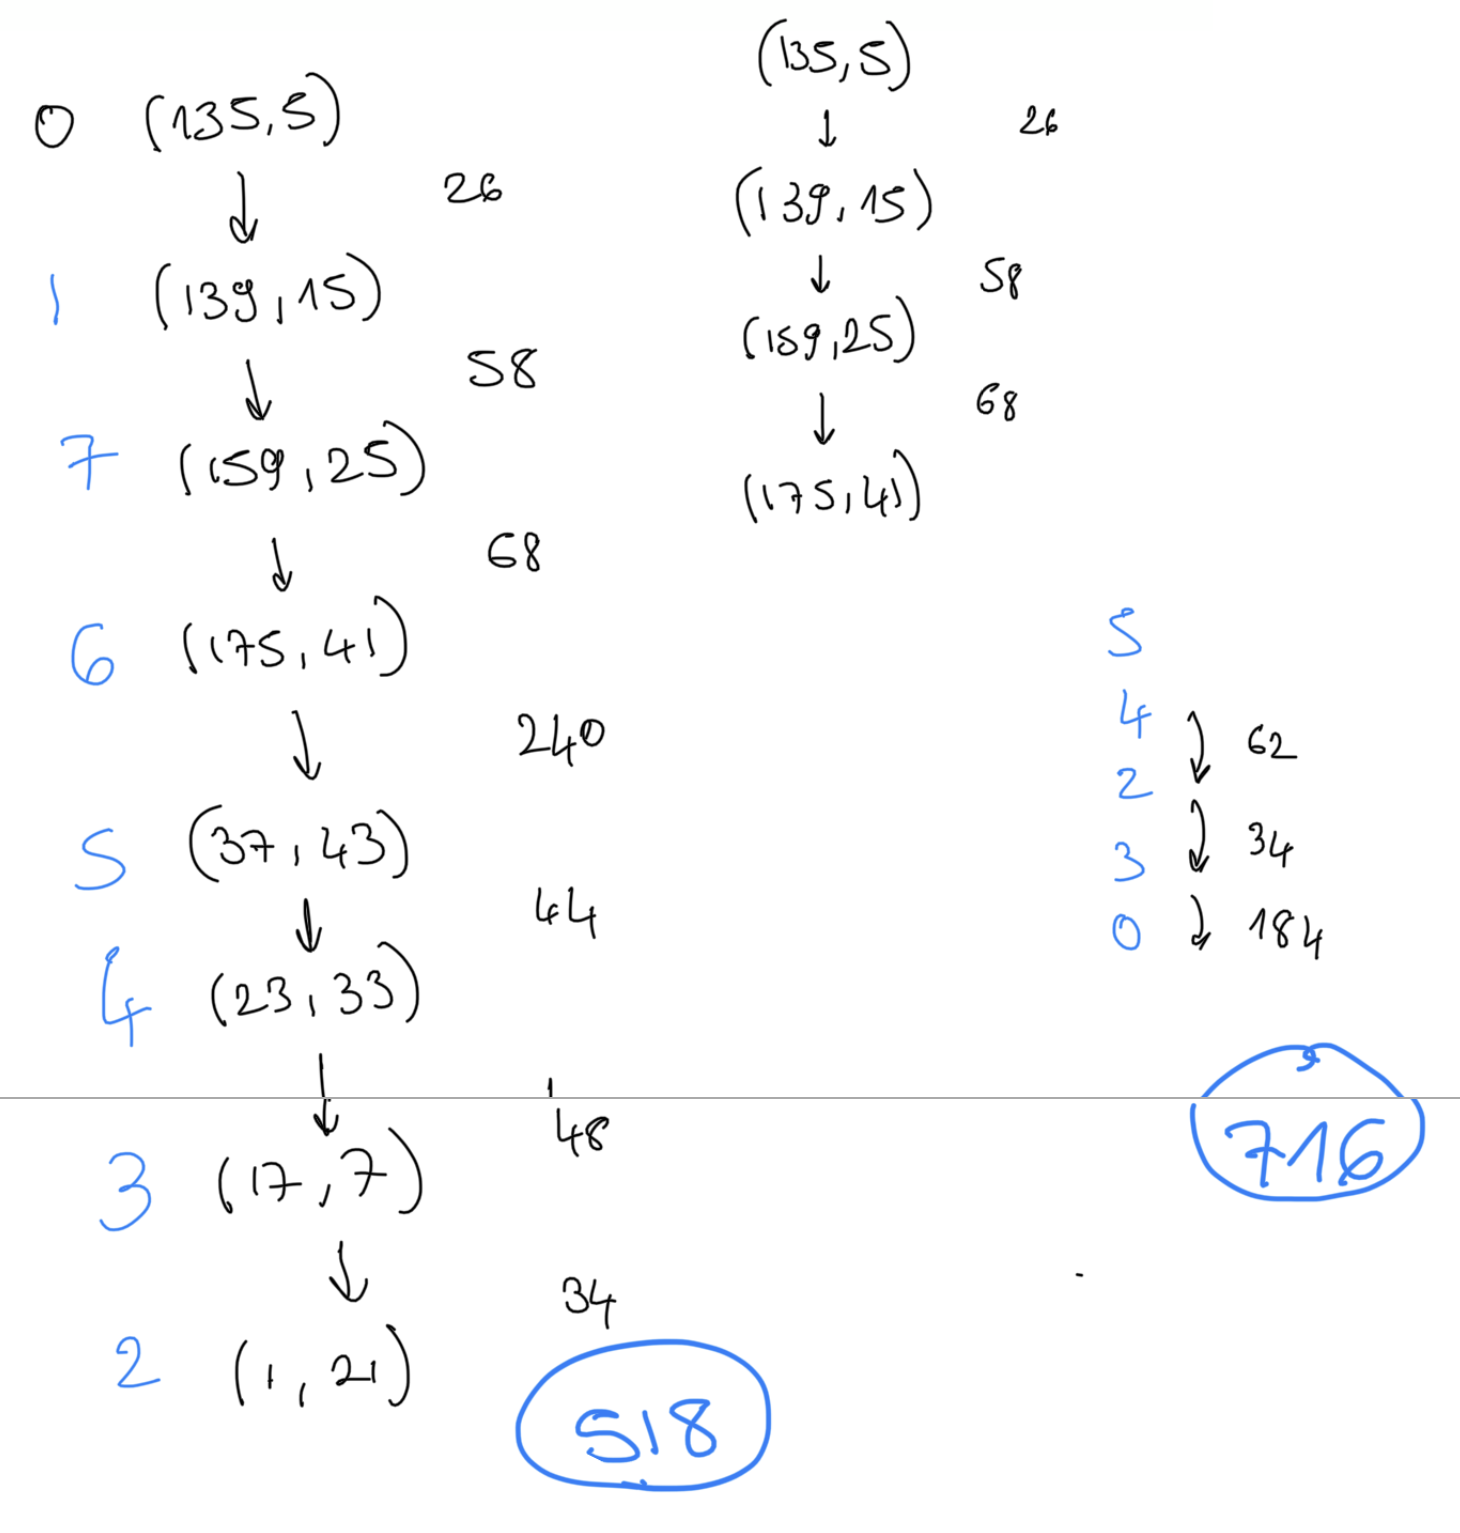 0 (135,5)
↓ 26
1 (139,15)
↓ 58
7 (159,25)
↓ 68
6 (175,41)
↓ 240
5 (37,43)
↓ 44
4 (23,33)
↓ 48
3 (17,7)
↓ 34
2 (1,21)
518
(135,5)
↓ 26
(139,15)
↓ 58
(159,25)
↓ 68
(175,41)
5
4
62
2
34
3
184
0
716